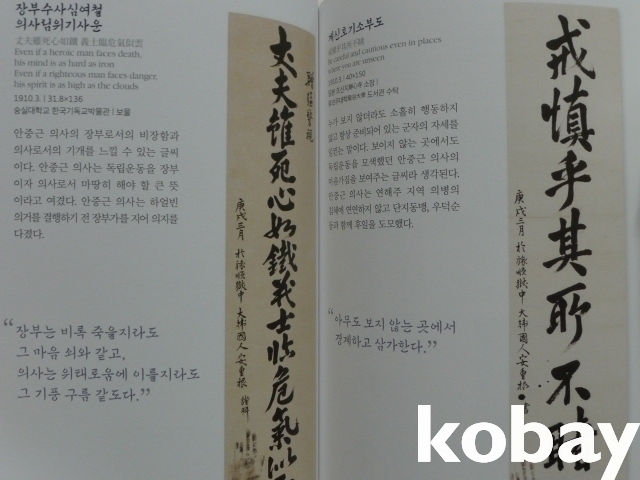 장부수사심여철
의사님위기사운
丈夫雖死心如鐵 義士臨危氣似雲
Even if a heroic man faces death,
his mind is as hard as iron
Even if a righteous man faces danger,
his spirit is as high as the clouds
1910.3. | 31.8×136
숭실대학교 한국기독교박물관 | 보물
안중근 의사의 장부로서의 비장함과
의사로서의 기개를 느낄 수 있는 글씨
이다. 안중근 의사는 독립운동을 장부
이자 의사로서 마땅히 해야 할 큰 뜻
이라고 여겼다. 안중근 의사는 하얼빈
의거를 결행하기 전 장부가를 지어 의지를
다졌다.
“장부는 비록 죽을지라도
그 마음 쇠와 같고,
의사는 위태로움에 이를지라도
그 기풍 구름 같도다.”
丈夫雖死心如鐵義士臨危氣似
庚戌三月 於旅順獄中 大韓國人 安重根 謹拜
계신호기소부도
Be careful and cautious even in places
where you are unseen
1910.3. | 40×150
도서관 수탁
누가 보지 않더라도 소홀히 행동하지
않고 항상 준비되어 있는 군자의 자세를
일컫는 말이다. 보이지 않는 곳에서도
독립운동을 모색했던 안중근 의사의
마음가짐을 보여주는 글씨라 생각된다.
안중근 의사는 연해주 지역 의병의
침체에 연연하지 않고 단지동맹, 우덕순
등과 함께 후일을 도모했다.
“아무도 보지 않는 곳에서
경계하고 삼가한다.”
戒愼乎其所不睹
庚戌三月 於旅順獄中 大韓國人 安重根 書
kobay